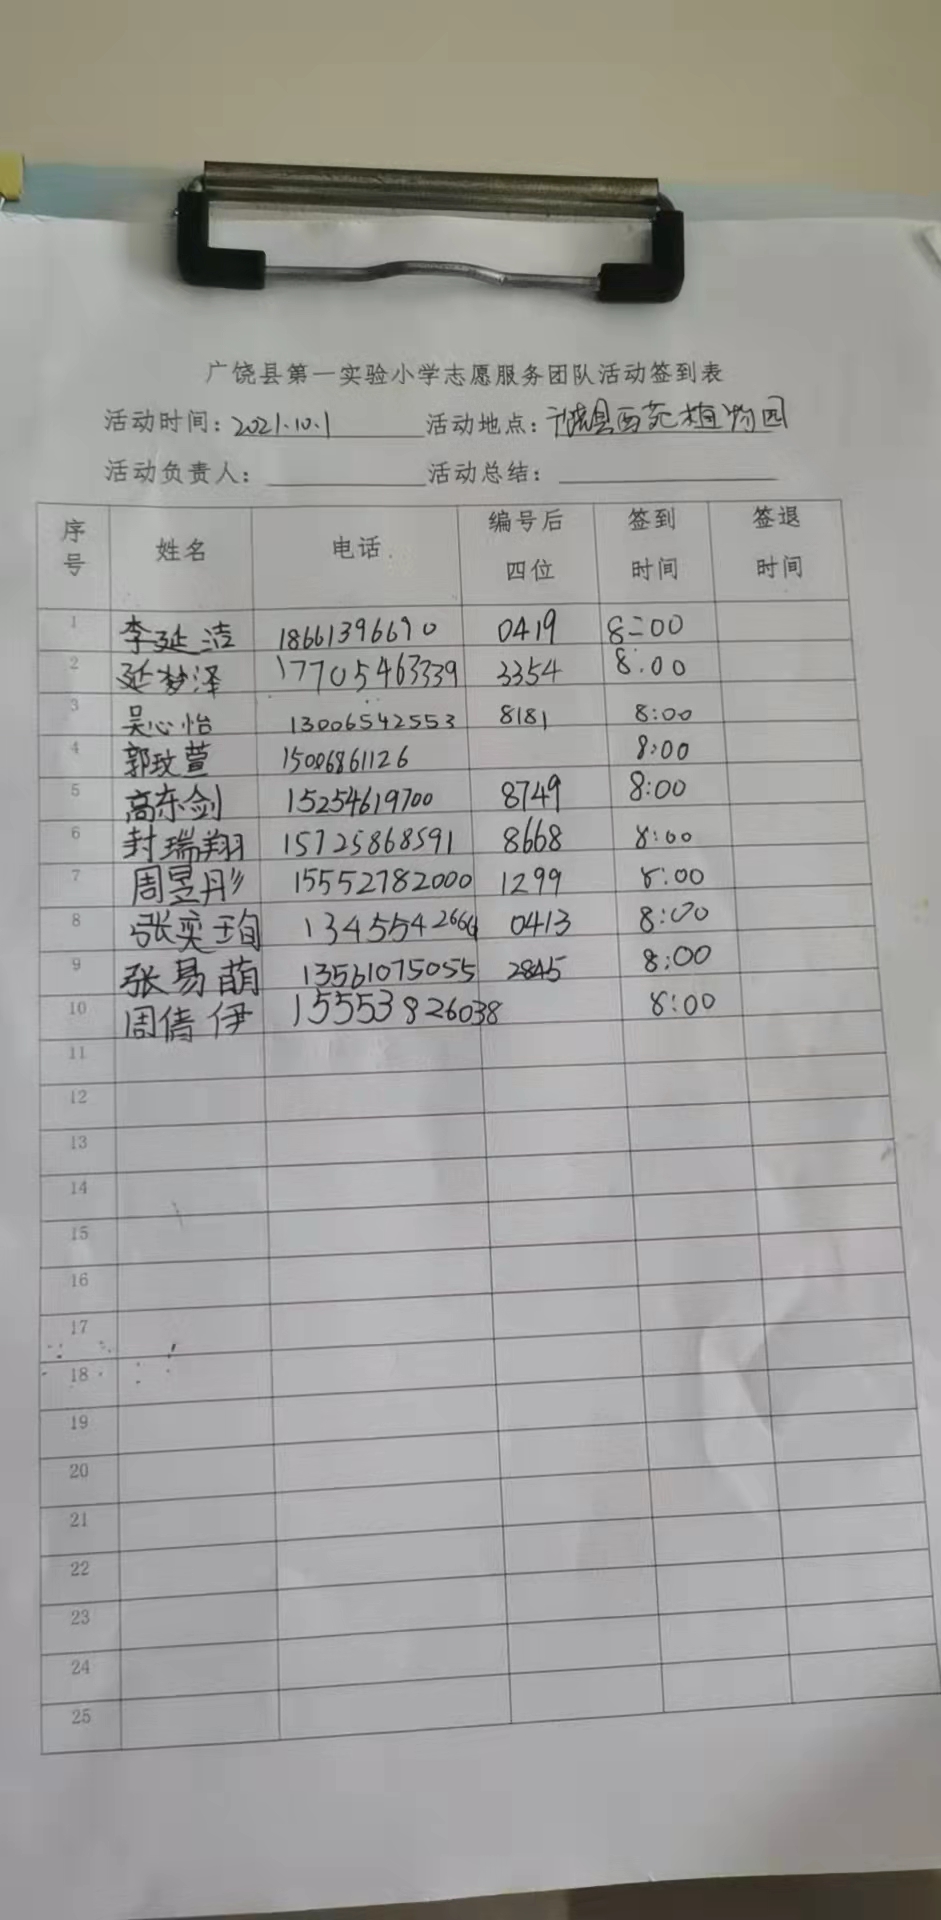 广饶县第一实验小学志愿服务团队活动签到表
活动时间：2021.10.1 活动地点：广饶县西苑植物园
活动负责人： 活动总结：
序号 姓名 电话 编号后四位 签到时间 签退时间
1 李延洁 18661396690 0419 8:00
2 延梦泽 17705463339 3354 8:00
3 吴心怡 13006542553 8181 8:00
4 郭玟萱 15006861126 8:00
5 高东剑 15254619700 8749 8:00
6 封瑞翔 15725868591 8668 8:00
7 周昱彤 15552782000 1299 8:00
8 张奕珣 0413 8:00
9 张易萌 13561075055 2845 8:00
10 周倩伊 15553826038 8:00
11
12
13
14
15
16
17
18
19
20
21
22
23
24
25